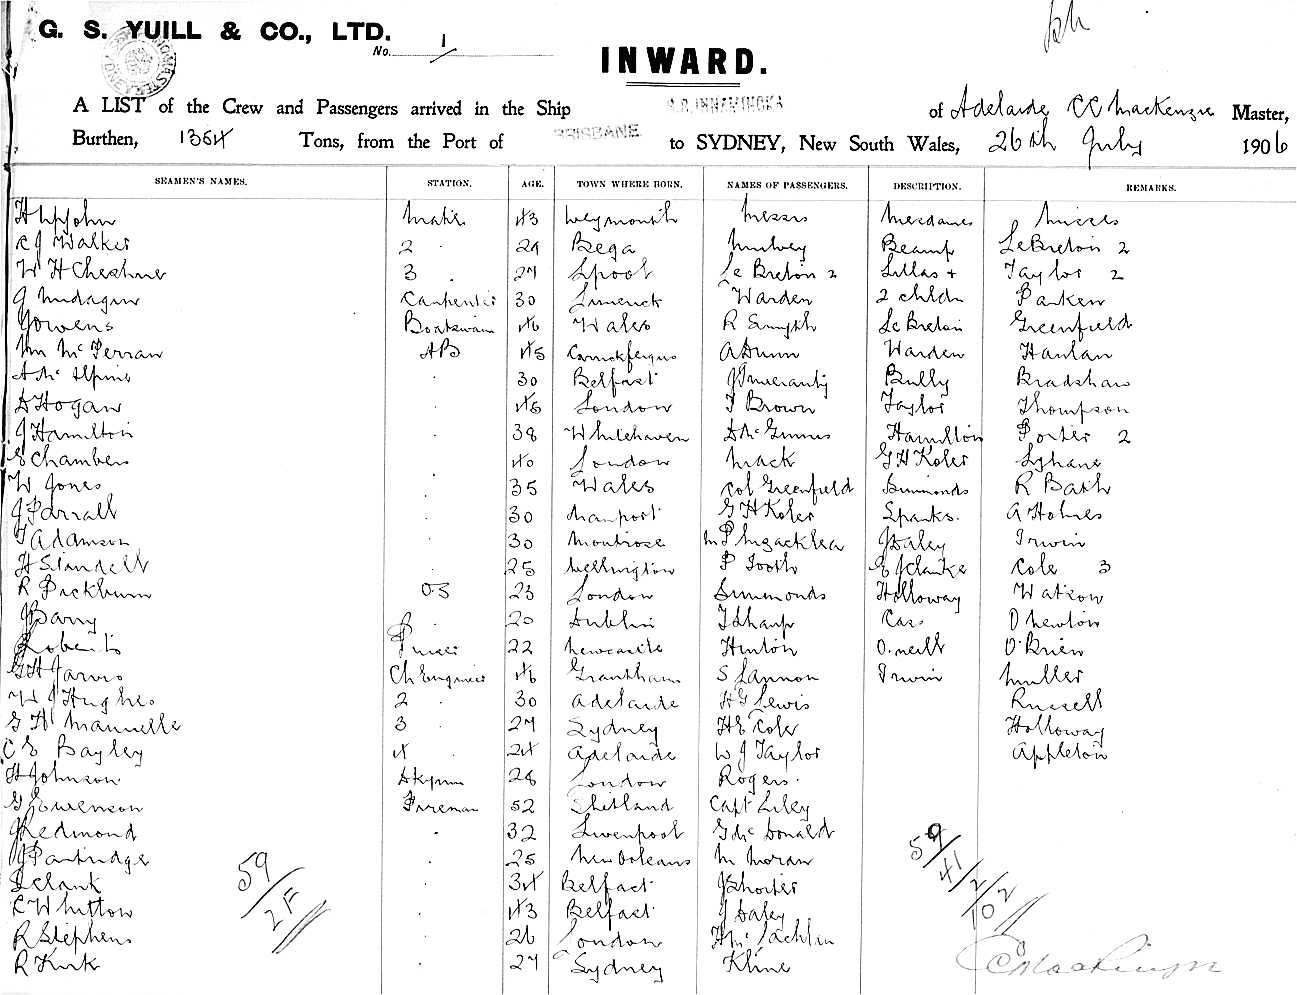 G. S. YUILL & CO., LTD.
No. 1
INWARD.
A LIST of the Crew and Passengers arrived in the Ship S.S. INNAMINCKA of Adelaide CC Mackenzie Master,
Burthen, 1364 Tons, from the Port of BRISBANE to SYDNEY, New South Wales, 26th July 1906
SEAMEN'S NAMES. STATION. AGE. TOWN WHERE BORN. NAMES OF PASSENGERS. DESCRIPTION. REMARKS.
H Upjohn Mate 43 Weymouth Messrs Mesdames Misses
R J Walker 2 29 Bega Mulvey Beamp LeBreton 2
W H Cheshire 3 27 Lpool Le Breton 2 Lillas + Taylor 2
J Carpenter 30 Limerick Warden 2 chldn Parken
J Owens Boatswain 46 Wales R Smyth Le Breton Greenfield
Wm McFerran AB 45 Carrickfergus A Dunn Warden Hanlan
A McAlpine 30 Belfast Bully Bradshaw
D Hogan 46 London T Brown Taylor Thompson
J Hamilton 38 Whitehaven D McGinnis Hamilton Porter 2
E Chambers 40 London Mack G H Koler Lyhane
W Jones 35 Wales Col Greenfield Simmonds R Bath
J Parrall 30 Maryport G H Koler Spanks. A Holmes
T Adamson 30 Montrose J Daley Irwin
H Standell 25 Wellington P Tooth E J Clarke Cole 3
R Packburn OS 23 London Simmonds Holloway Watson
J Barry 20 Dublin T Sharp Cass D Newton
Roberts Purser 22 Newcastle Hinton O'neill O'Brien
G H Jarvis Ch Engineer 46 Grantham S Lannon Irwin Muller
W J Hughes 2 30 Adelaide H G Lewis Russell
G H Mannelle 3 27 Sydney H E Cole Holloway
C E Bayley 4 24 Adelaide W J Taylor Appleton
H Johnson Dkyman 28 London Rogers.
G Sorenson Fireman 52 Shetland Capt Liley
J Redmond 32 Liverpool G McDonald
J Partridge 25 New Orleans M Moran
S Clark 34 Belfast J Shorter
R Whitton 43 Belfast J Daley
R Stephens 26 London H McLachlan
R Kirk 27 Sydney Kline
59/2F
59/41/2/102
CC Mackenzie